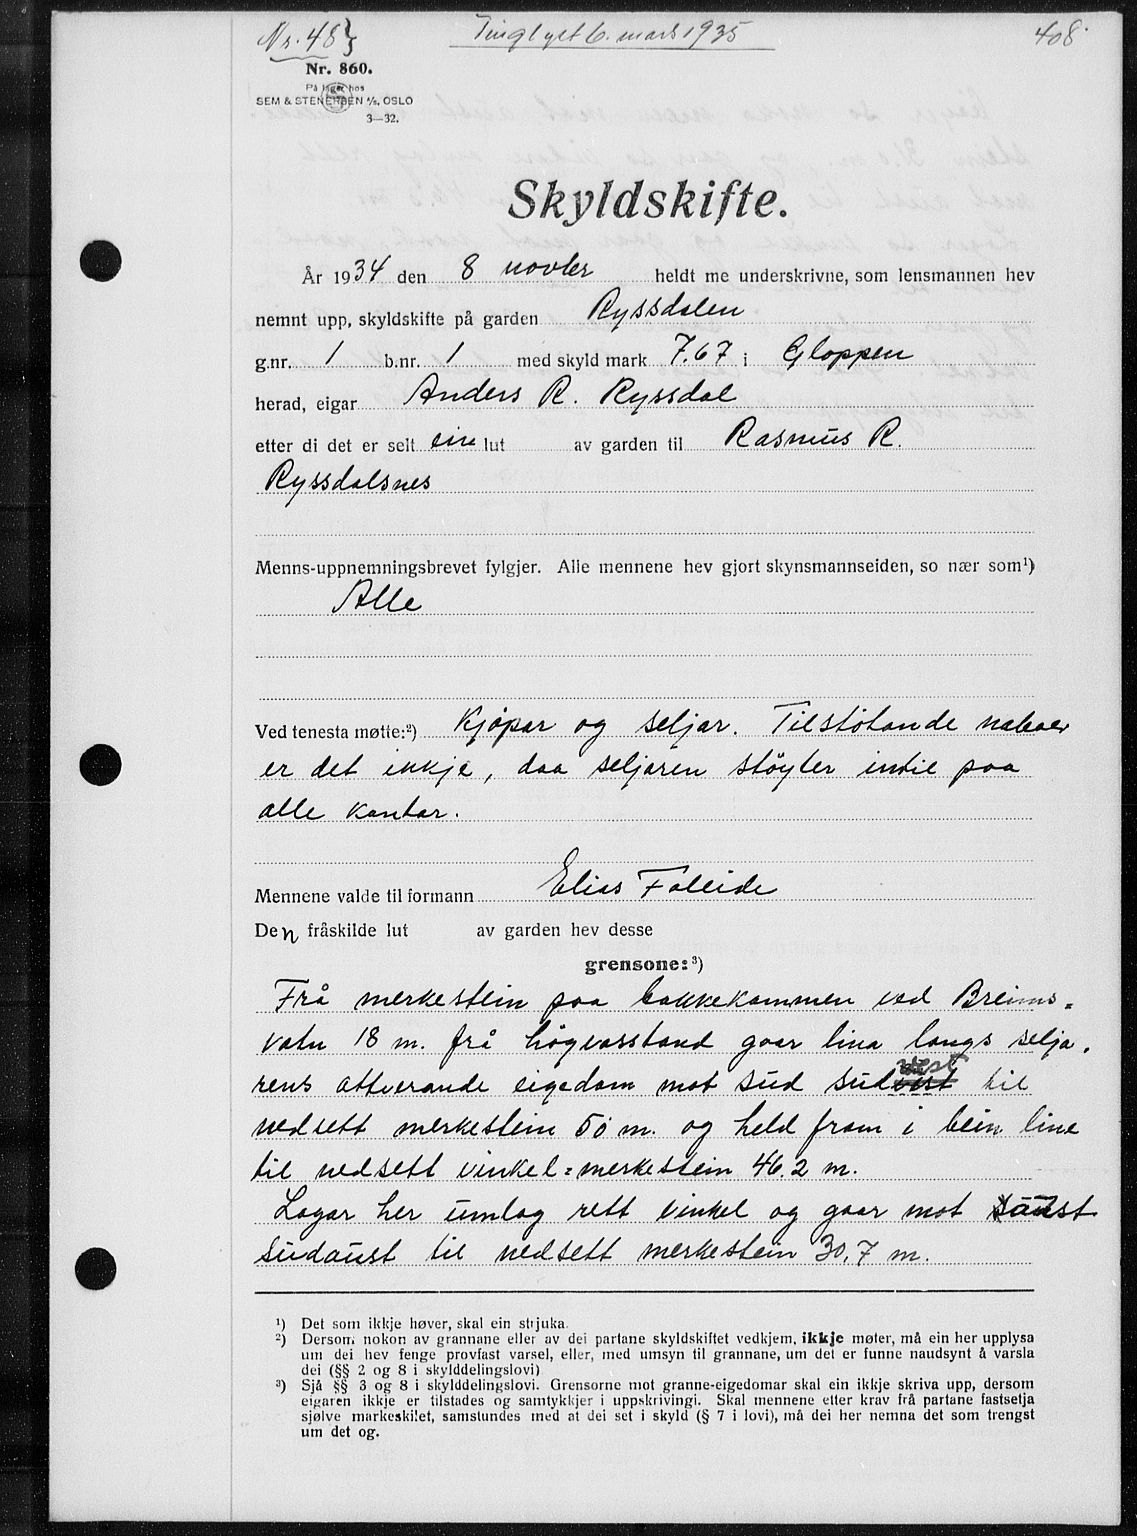 Nr. 483
Tinglyst 6. mars 1935
408
Nr. 860.
På lager hos
SEM & STENERSEN A/S, OSLO
3—32.
Skyldskifte.
År 1934 den 8 novbr heldt me underskrivne, som lensmannen hev
nemnt upp, skyldskifte på garden Ryssdalen
g.nr. 1 b.nr. 1 med skyld mark 7.67 i Gloppen
herad, eigar Anders R. Ryssdal
etter di det er selt ein lut av garden til Rasmus R.
Ryssdalsnes
Menns-uppnemningsbrevet fylgjer. Alle mennene hev gjort skynsmannseiden, so nær som¹)
Alle
Ved tenesta møtte:²) Kjøpar og seljar. Tilstötande naboer
er det inkje, daa seljaren støyter intil paa
alle kantar.
Mennene valde til formann Elias Foleide
Den fråskilde lut av garden hev desse
grensone:³)
Frå merkestein paa bakkekammen ved Breims=
vatn 18 m. frå högvasstand gaar lina langs selja.
rens attverande eigedom mot sud sudvest til
nedsett merkestein 50 m. og held fram i bein line
til nedsett vinkel=merkestein 46.2 m.
Lagar her umlag rett vinkel og gaar mot saust
sudaust til nedsett merkestein 30,7 m.
¹) Det som ikkje høver, skal ein strjuka.
²) Dersom nokon av grannane eller av dei partane skyldskiftet vedkjem, ikkje møter, må ein her upplysa
um dei hev fenge provfast varsel, eller, med umsyn til grannane, um det er funne naudsynt å varsla
dei (§§ 2 og 8 i skylddelingslovi)
³) Sjå §§ 3 og 8 i skylddelingslovi. Grensorne mot granne-eigedomar skal ein ikkje skriva upp, dersom
eigaren ikkje er tilstades og samtykkjer i uppskrivingi. Skal mennene etter krav frå partane fastsetja
sjølve markeskilet, samstundes med at dei set i skyld (§ 7 i lovi), må dei her nemna det som trengst
um det og.